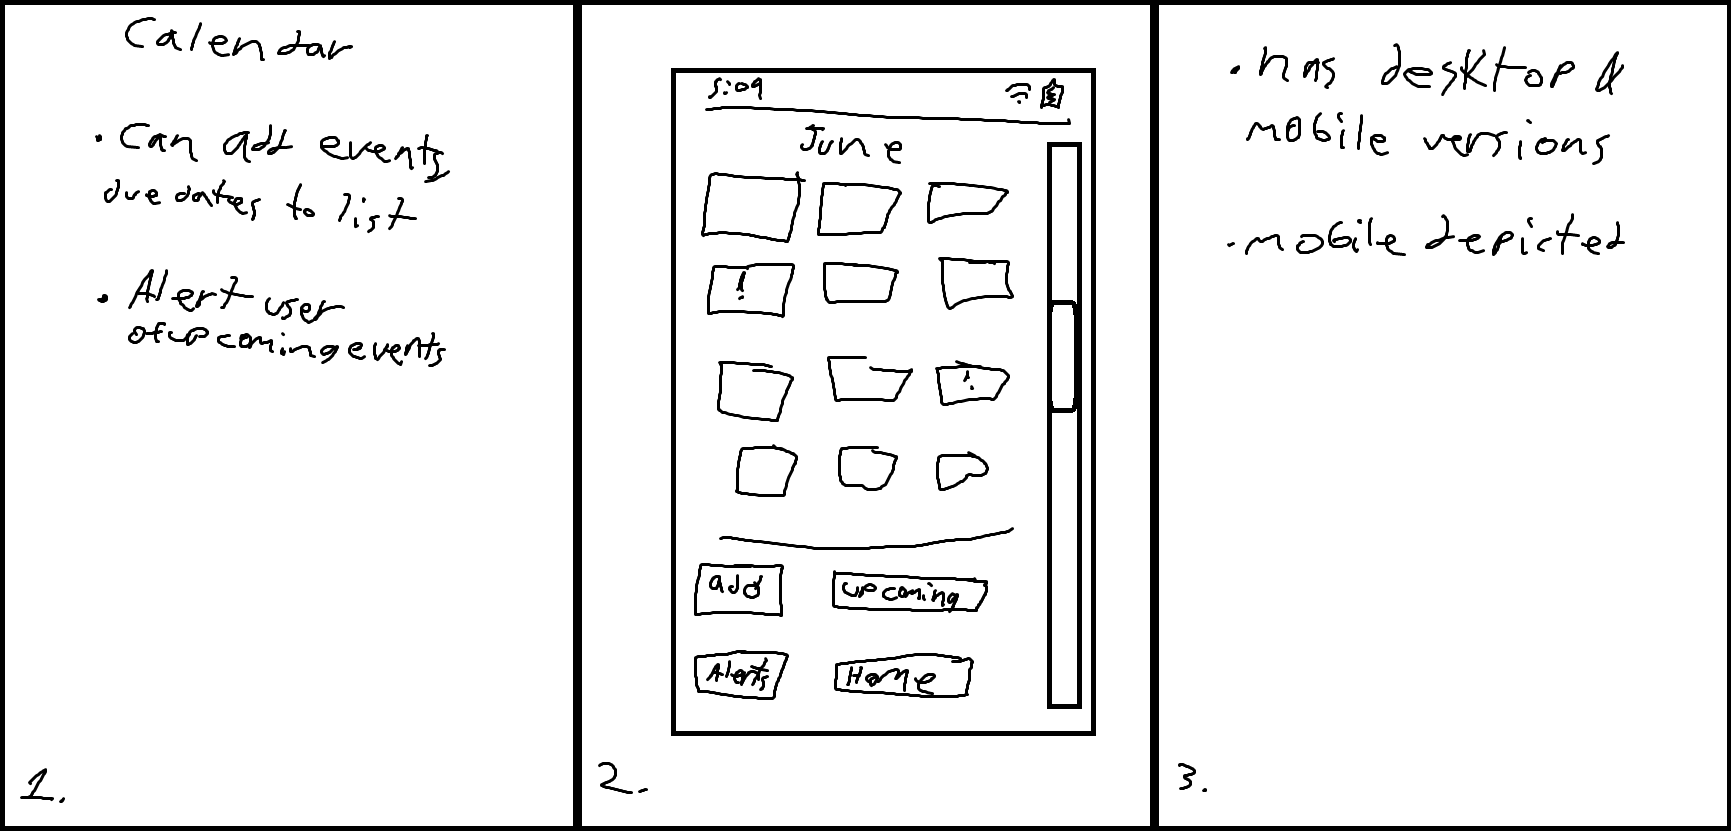 Calendar
• Can add events,
due dates to list
• Alert user
of upcoming events
1.
5:09
June
!
!
add
upcoming
Alerts
Home
2.
• has desktop &
mobile versions
• mobile depicted
3.